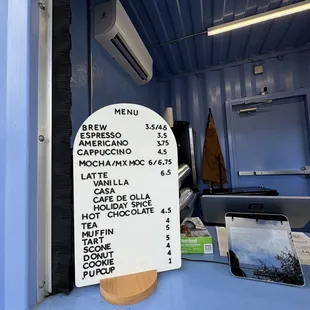 MENU
BREW 3.5/4.5
ESPRESSO 3.5
AMERICANO 3.75
CAPPUCCINO 4.5
MOCHA/MX MOC 6/6.75
LATTE 6.5
VANILLA
CASA
CAFE DE OLLA
HOLIDAY SPICE
HOT CHOCOLATE 4.5
TEA 4
MUFFIN 5
TART 5
SCONE 4
DONUT 4
COOKIE 1
PUPCUP